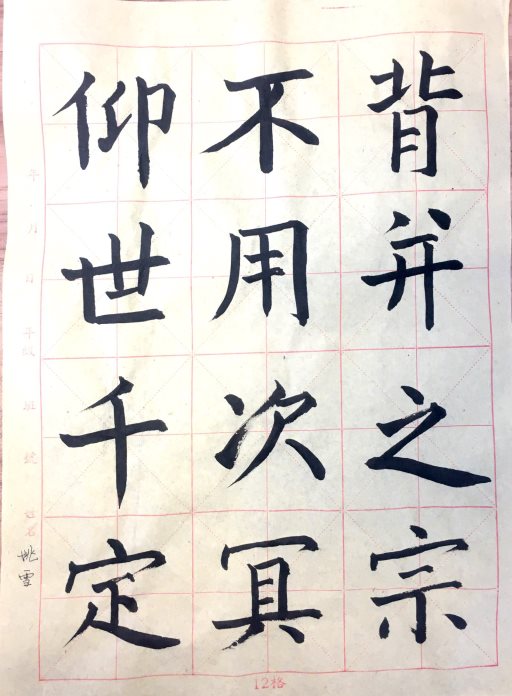 背并之宗
不用次冥
仰世千定
年 月 日 年级 班 姓名 姚雪
12格